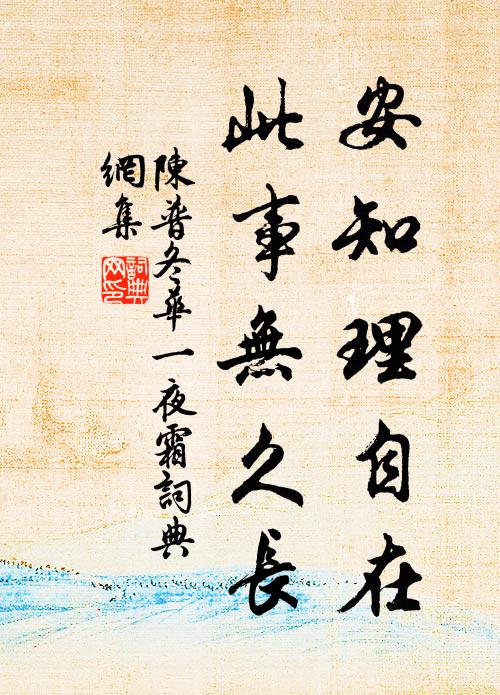 安知理自在
此事無久長
陳普冬華一夜霜詞典
網集
詞典
網印